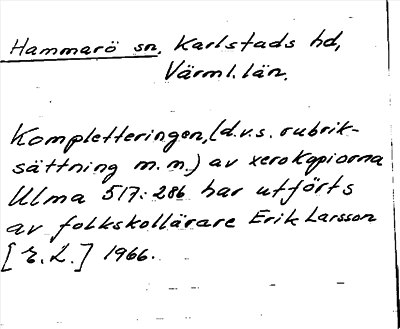 Hammarö sn, Karlstads hd,
Värml. län.
Kompletteringen, (d.v.s. rubrik-
sättning m.m.) av xerokopiorna
Ulma 517:286 har utförts
av folkskollärare Erik Larsson
[E.L.] 1966.